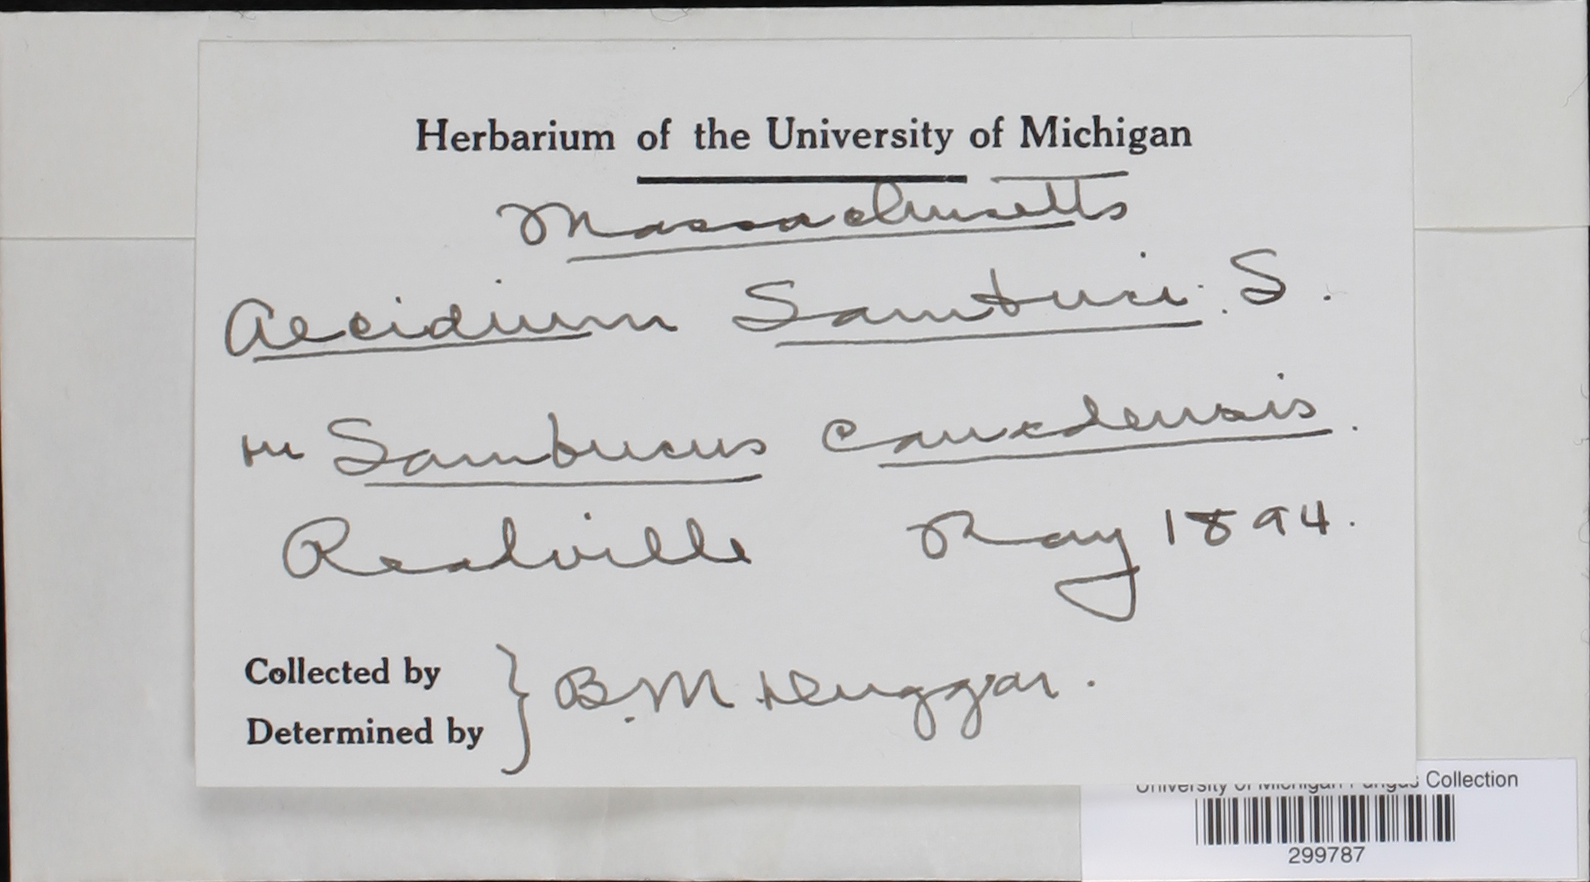 Herbarium of the University of Michigan
Massachusetts
Aecidium Sambuci. S.
on Sambucus canadensis.
Readville May 1894.
Collected by
Determined by } B. M. Duggar.
University of Michigan Fungus Collection
299787